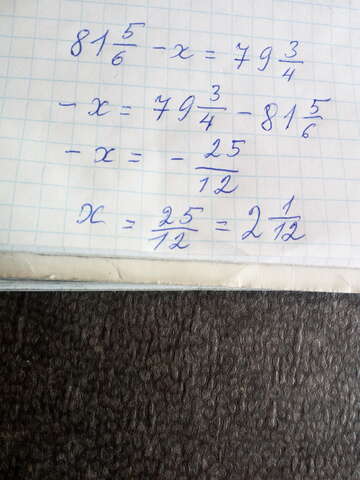 81 5/6 - x = 79 3/4
- x = 79 3/4 - 81 5/6
- x = - 25/12
x = 25/12 = 2 1/12